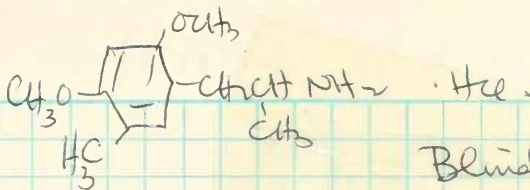 OCH3
CH3O CH2CH NH2 · HCl
CH3
H3C
Blind